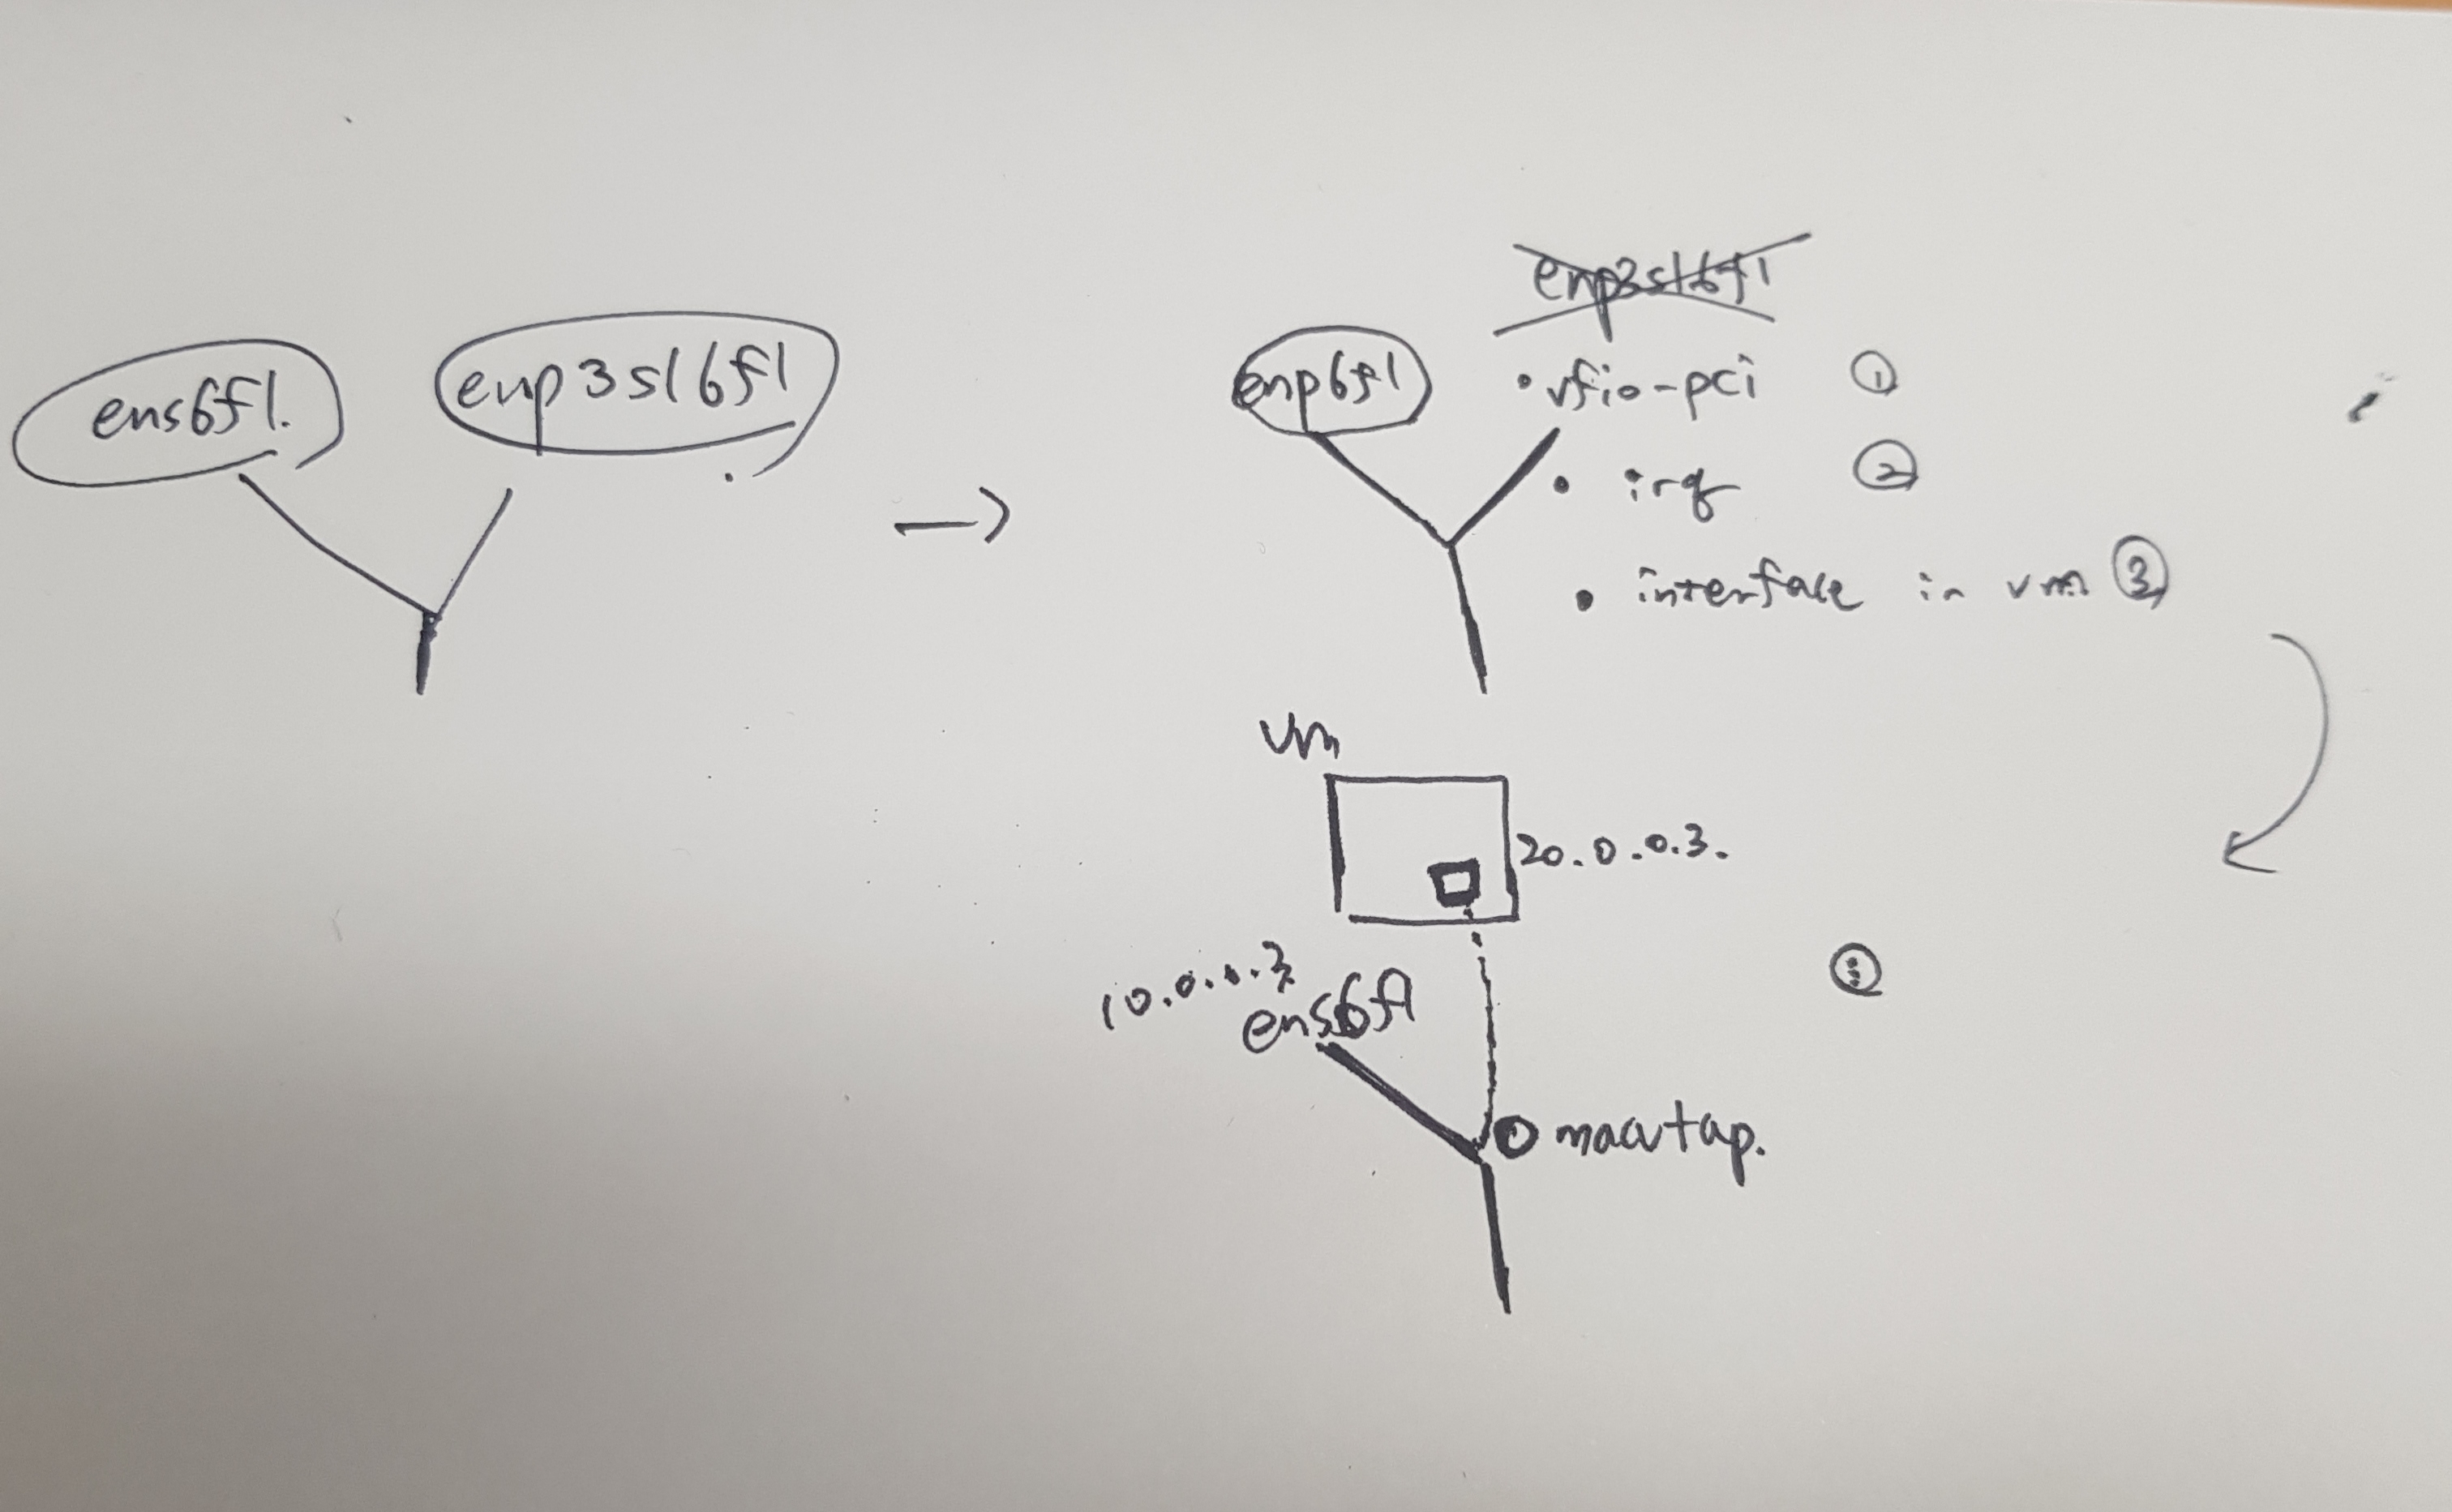 ens6f1.
enp3s16f1
→
enp3s16f1
enp6f1
• vfio-pci ①
• irq ②
• interface in vm ③
vm
20.0.0.3.
10.0.0.3
ens6f1
macvtap.